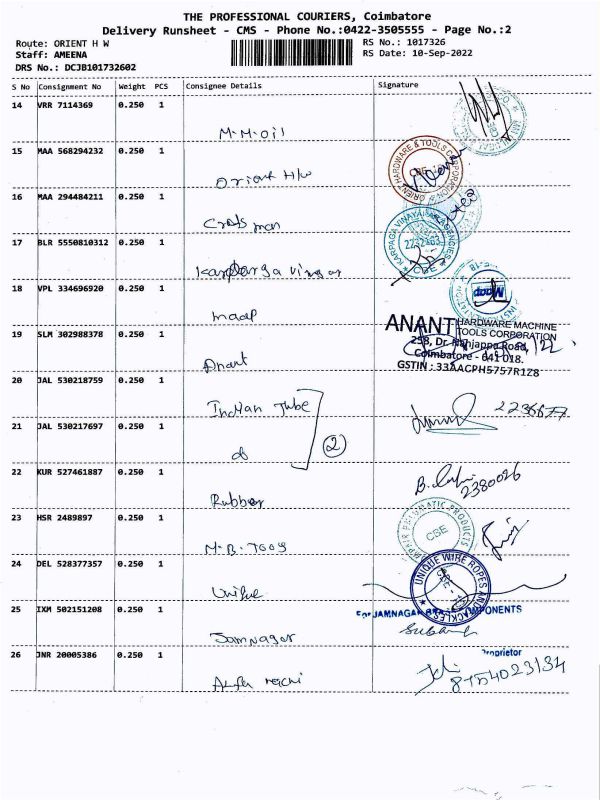 THE PROFESSIONAL COURIERS, Coimbatore
Delivery Runsheet - CMS - Phone No.:0422-3505555 - Page No.:2
Route: ORIENT H W
RS No.: 1017326
Staff: AMEENA
RS Date: 10-Sep-2022
DRS No.: DCJB101732602
S No Consignment No Weight PCS Consignee Details Signature
14 VRR 7114369 0.250 1
M.M.Oil
15 MAA 568294232 0.250 1
Orient H/w
ORIENT HARDWARE & TOOLS CORPORATION
16 MAA 294484211 0.250 1
KARPAGA VINAYAGA AGENCIES
CBE
17 BLR 5550810312 0.250 1
18 VPL 334696920 0.250 1
maap
Maap
19 SLM 302988378 0.250 1
Anant
ANANT HARDWARE MACHINE
TOOLS CORPORATION
258, Dr. Nanjappa Road,
Coimbatore - 641 018.
GSTIN : 33AACPH5757R1Z8
20 JAL 530218759 0.250 1
Indian Tube
2236677
21 JAL 530217697 0.250 1
do
2
22 KUR 527461887 0.250 1
Rubber
2380026
23 HSR 2489897 0.250 1
PNEUMATIC PRODUCTS
CSE
24 DEL 528377357 0.250 1
UNIQUE WIRE ROPES AND TACKLES
25 IXM 502151208 0.250 1
Jamnagar
For JAMNAGAR BRASS COMPONENTS
Proprietor
26 JNR 20005386 0.250 1
8754023134